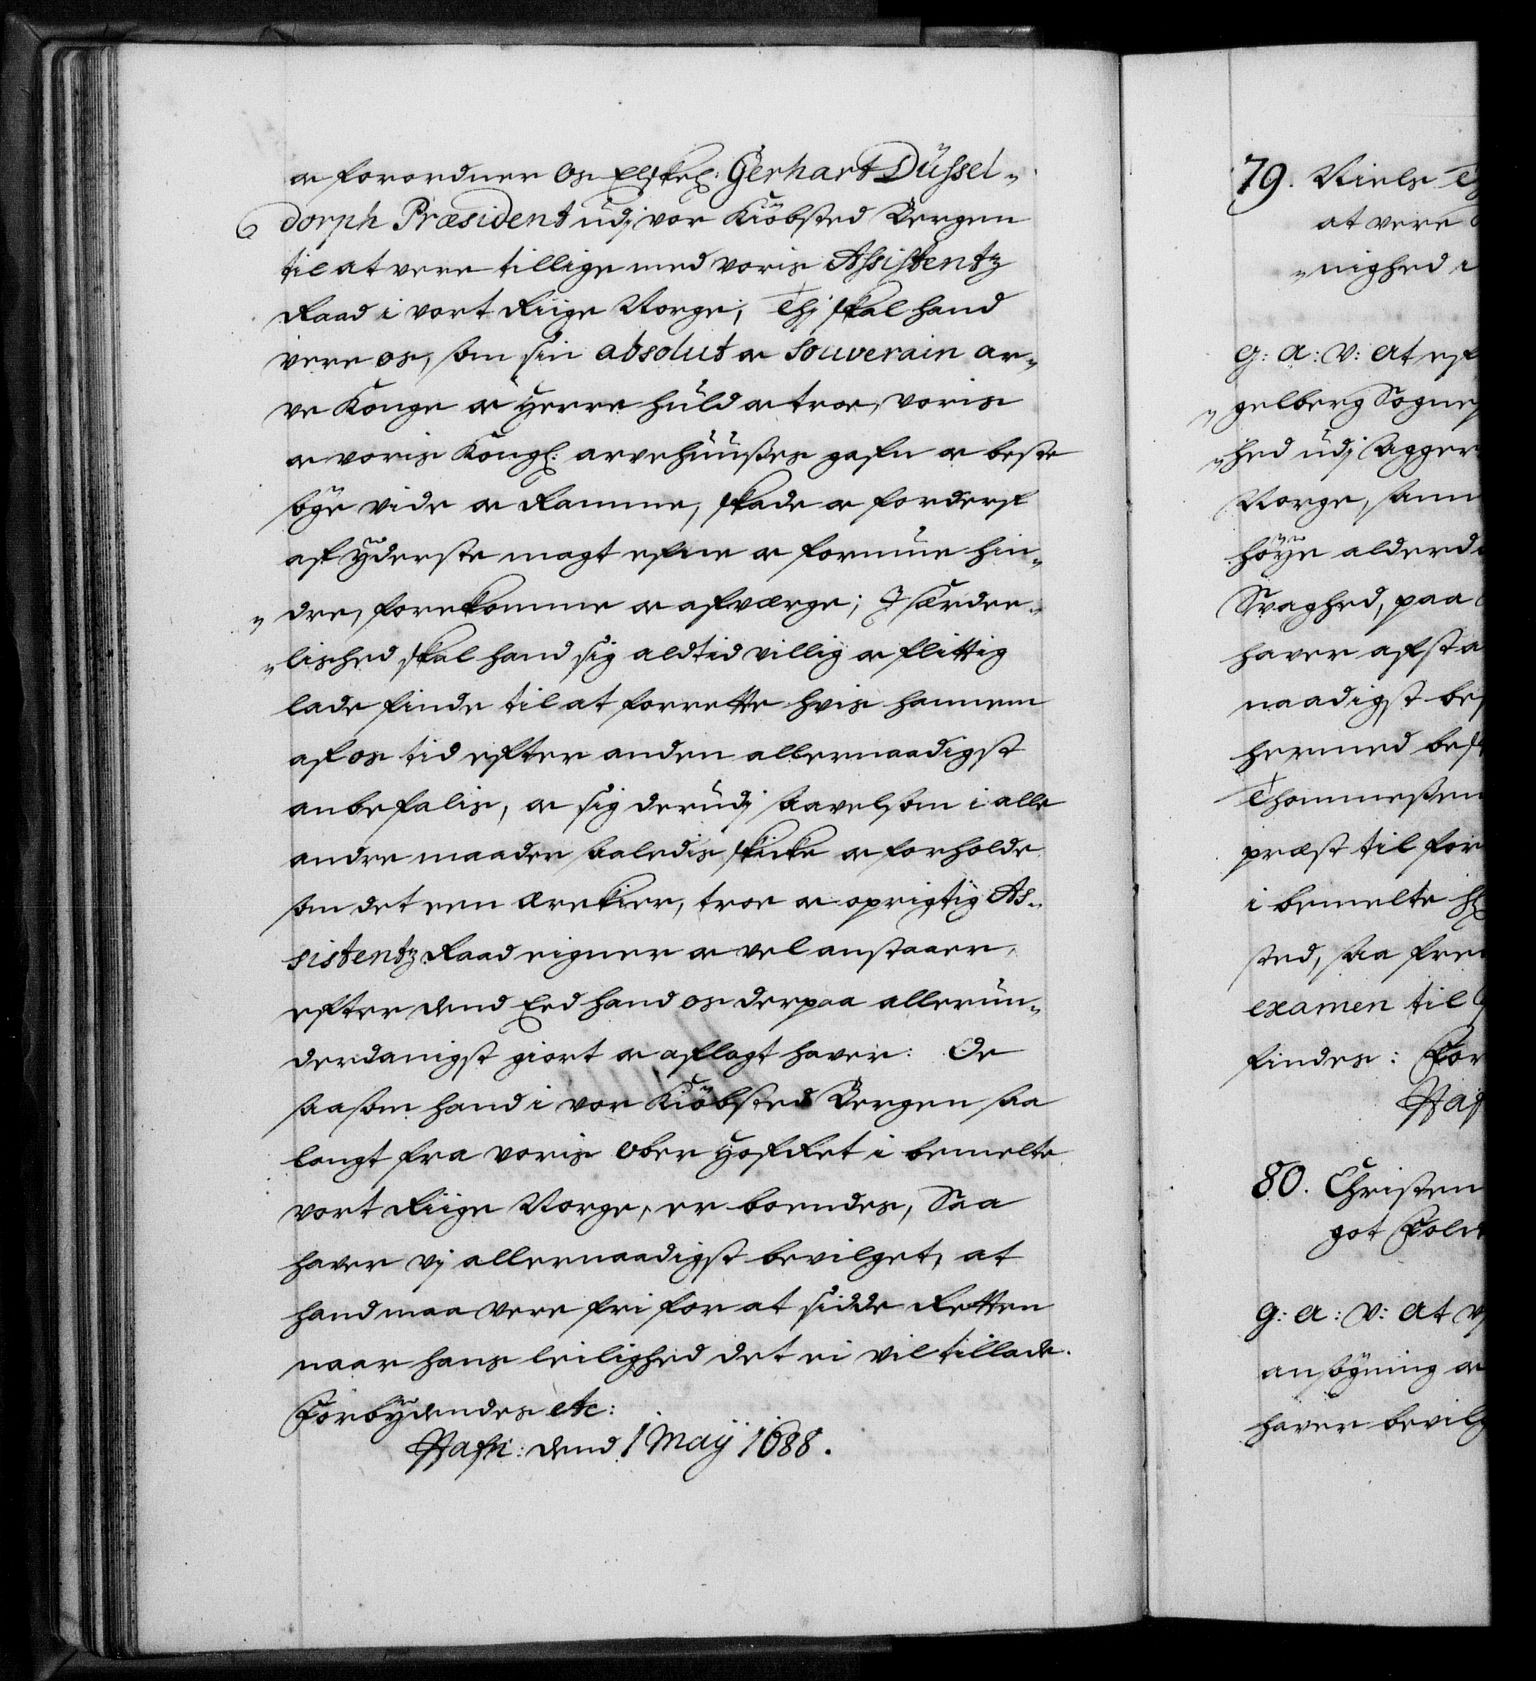 oc forordner Os Elskel: Gerhart Düssel-
dorph Præsident udj vor Kiöbsted Bergen
til at vere tillige med voris Assistentz
Raad i vort Riige Norge; Thj skal hand
vere os, som sin absolut oc Souverain ar-
ve Konge oc Herre huld oc troe, voris
oc voris Kongl: arvehuusses gafn oc beste
söge vide oc Ramme, skade oc forderf
af yderste magt efne oc formue hin-
dre, forekomme oc afværge; J særdee-
lished skal hand sig altid villig oc flittig
lade finde til at forrette hvis hannem
af os tid efter anden allernaadigst
anbefalis, oc sig derudj saavelsom i alle
andre maader saaledis skicke oc forholde
som det een ærekier, troe oc oprigtig As-
sistentz Raad eigner oc vel anstaaer,
efter dend Eed hand os derpaa allerun-
derdanigst giort oc aflagt haver: Oc
saasom hand i vor Kiöbsted Bergen saa
langt fra voris Ober HofRet i bemelte
vort Riige Norge, er boendes, Saa
haver vj allernaadigst bevilget, at
hand maa vere fri for at sidde Retten
naar hans leilighed det ei vil tillade.
Forbydendes etc:
Hafn: dend 1 Maÿ 1688.
79. Niels
at vere
nighed
g: a: v: At
gelberg Sogne
hed udj Agger
Norge,
höye alderd
Svaghed, paa
haver afsta
naadigst
hermed
Thommessen
præst til for
i bemelte
sted, saa
examen til
findes: For
80. Christen
got
g: a: v: At
ansögning oc
haver bevilg